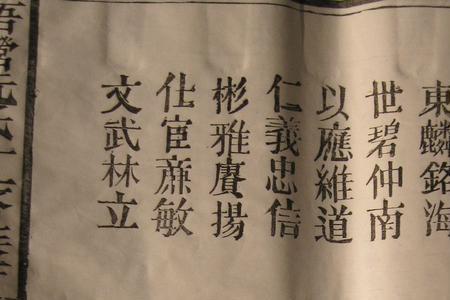 東麟銘海
世碧仲南
以應維道
仁義忠信
彬雅賡揚
仕宦蔗敏
文武林立